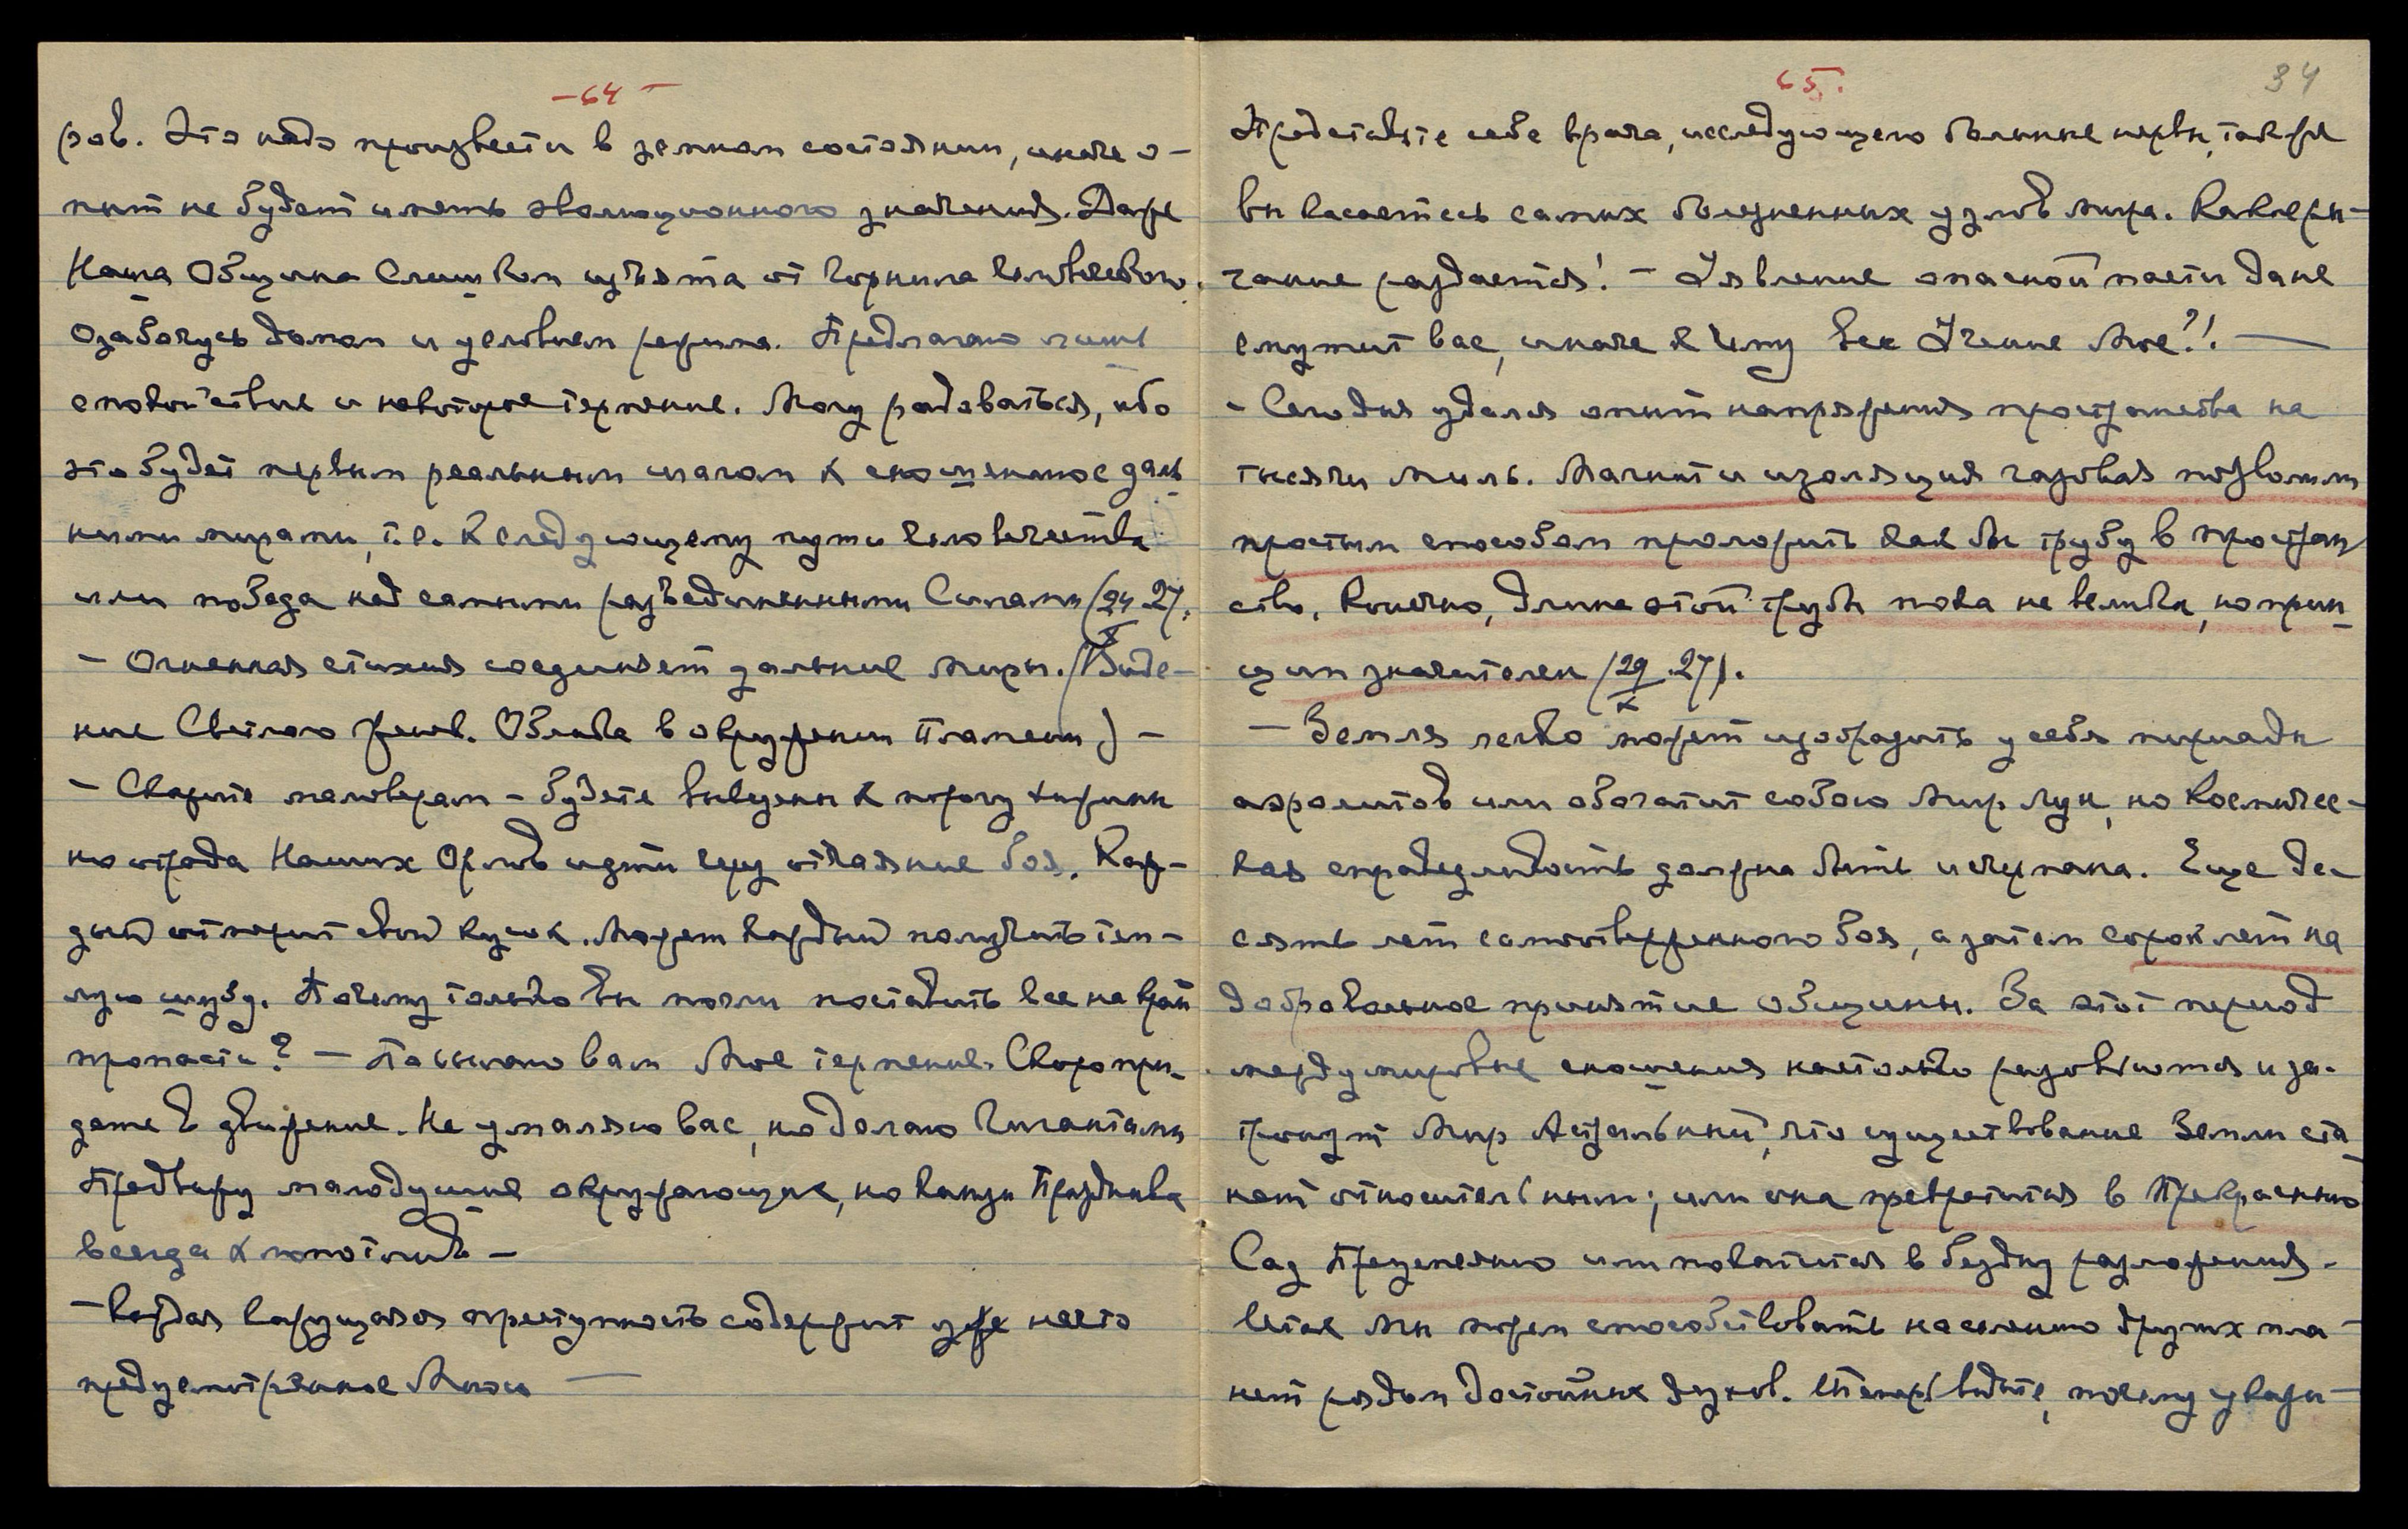 -64-
ров. Это надо произвести в земном состоянии, иначе о-
пыт не будет иметь эволюционного значения. Даже
Наша Община слишком изъята от горнила человеческого.
Озабочусь домом и условием режима. Предлагаю лишь
спокойствие и некоторое терпение. Могу радоваться, ибо
это будет первым реальным шагом к сношению с даль
ними мирами, т.е. к следующему пути человечества
или победа над самыми разъединенными Силами (24/X 27).
- Огненная стихия соединяет дальние миры. (Виде-
ние Светлого женс. Облика в окружении Пламени) -
- Скажите маловерам - будете выведены к порогу хижины
но отрада Наших Орлов идти через отчаяние боя. Каж-
дый отмерит свой кусок. Может каждый получить теп-
лую шубу. Почему только вы могли поставить все на край
пропасти? - Посылаю вам Мое терпение. Скоро при-
дете в движение. Не умаляю вас, но делаю Гигантами
Предвижу малодушие окружающих, но канун Праздника
всегда хлопотлив -
- Каждая кажущаяся преступность содержит уже нечто
предусмотренное Мною —
65.
34
Представьте себе врача, исследующего больные нервы, так же
вы касаетесь самых болезненных узлов мира. Какое ры-
чание раздается! - Явление опасной пасти да не
смутит вас, иначе к чему все Учение Мое?! —
- Сегодня удался опыт напряжения пространства на
тысячи миль. Магнит и изоляция газовая позволили
простым способом проложить как бы трубу в простран
ство. Конечно, длина этой трубы пока не велика, но прин-
цип значителен (29/X 27).
- Земля легко может изобразить у себя мириады
аэролитов или обогатит собою мир лун, но космичес-
кая справедливость должна быть исчерпана. Еще де-
сять лет самоотверженного боя, а затем сорок лет на
добровольное принятие общины. За этот период
междумировые сношения настолько разовьются и за-
тронут Мир Астральный, что существование Земли ста
нет относительным; или она превратится в Прекрасный
Сад Преуспеяния или покатится в бездну разложения.
Итак мы можем способствовать населению других пла-
нет рядом достойных духов. Теперь видите, почему указы-